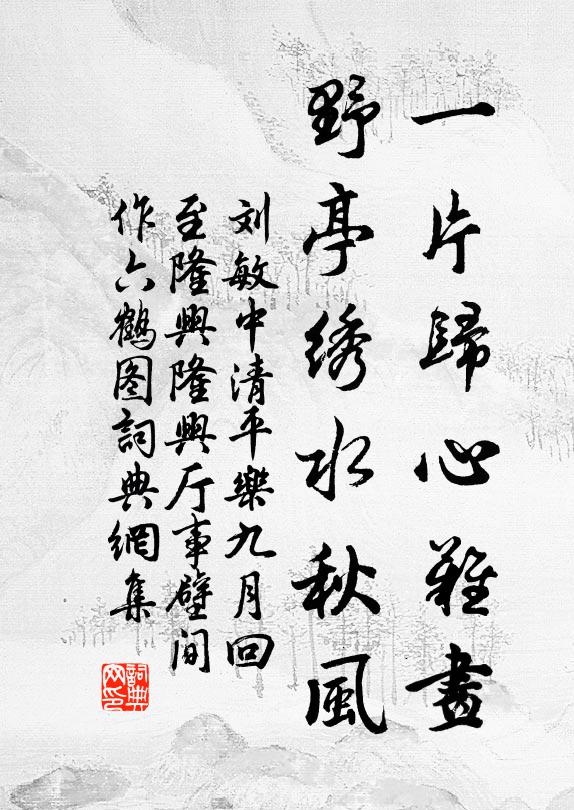 一片歸心難畫
野亭綉水秋風
刘敏中清平樂九月回
至隆興隆興厅事壁间
作六鶴图詞典網集
詞典网印